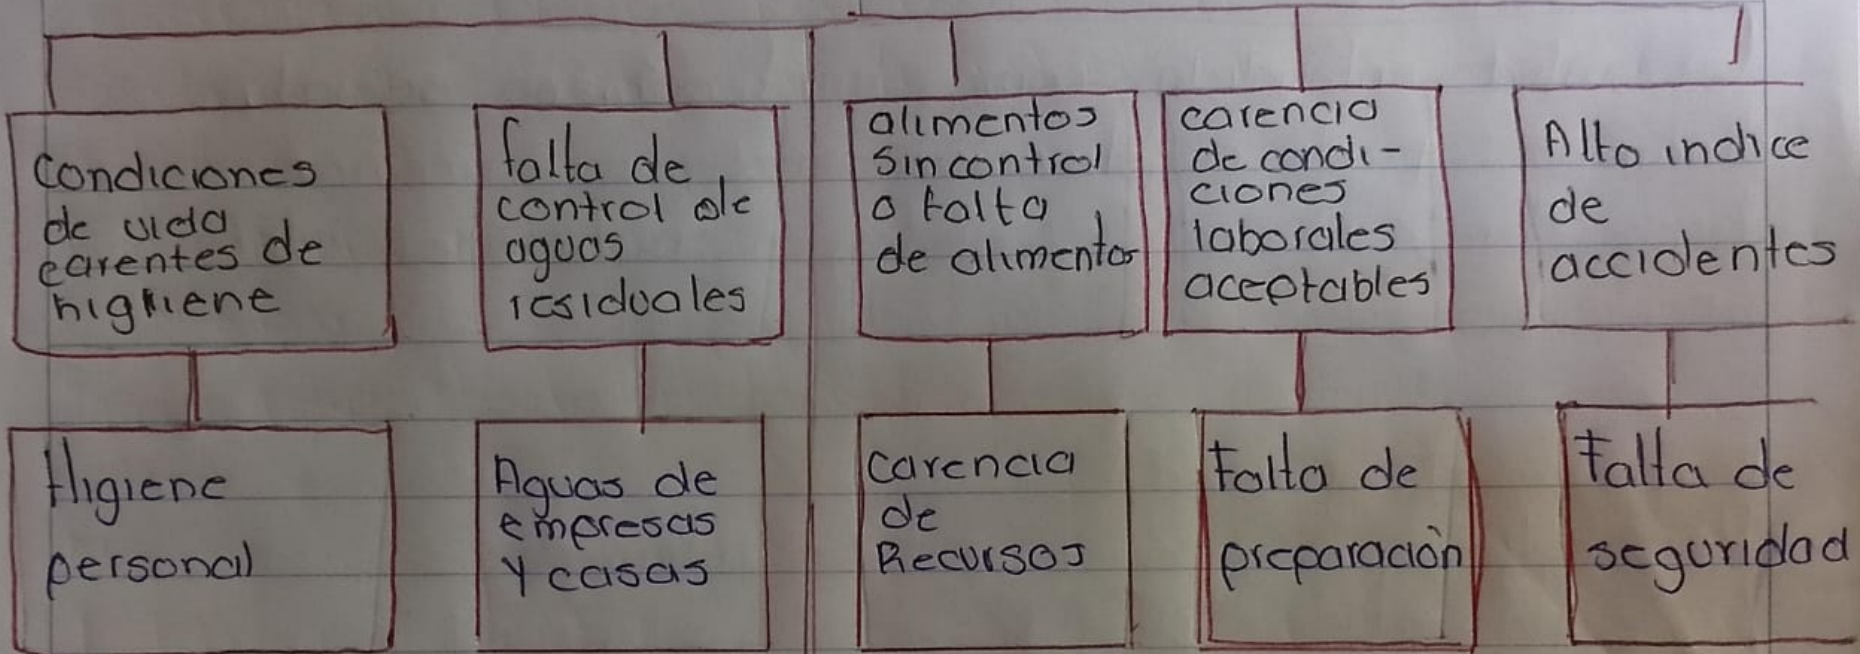 Condiciones
de vida
carentes de
higiene
falta de
control de
aguas
residuales
alimentos
sin control
o falta
de alimentos
carencia
de condi-
ciones
laborales
aceptables
Alto indice
de
accidentes
Higiene
personal
Aguas de
empresas
y casas
carencia
de
Recursos
Falta de
preparaciòn
Falta de
seguridad